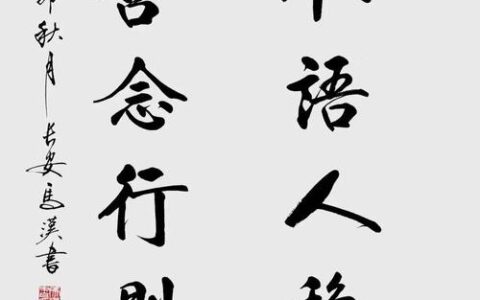 語人
善念行則
卯秋月长安馬漢書